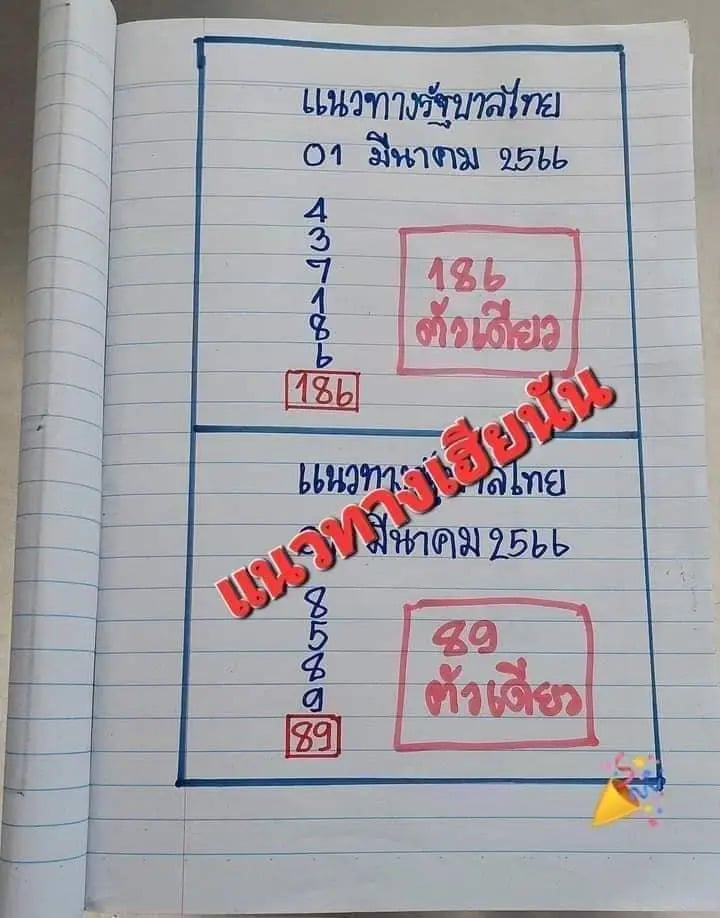 แนวทางรัฐบาลไทย
01 มีนาคม 2566
4
3
7
1
8
6
186
186
ตัวเดียว
แนวทางเฮียนัน
แนวทางรัฐบาลไทย
มีนาคม 2566
8
5
8
9
89
89
ตัวเดียว